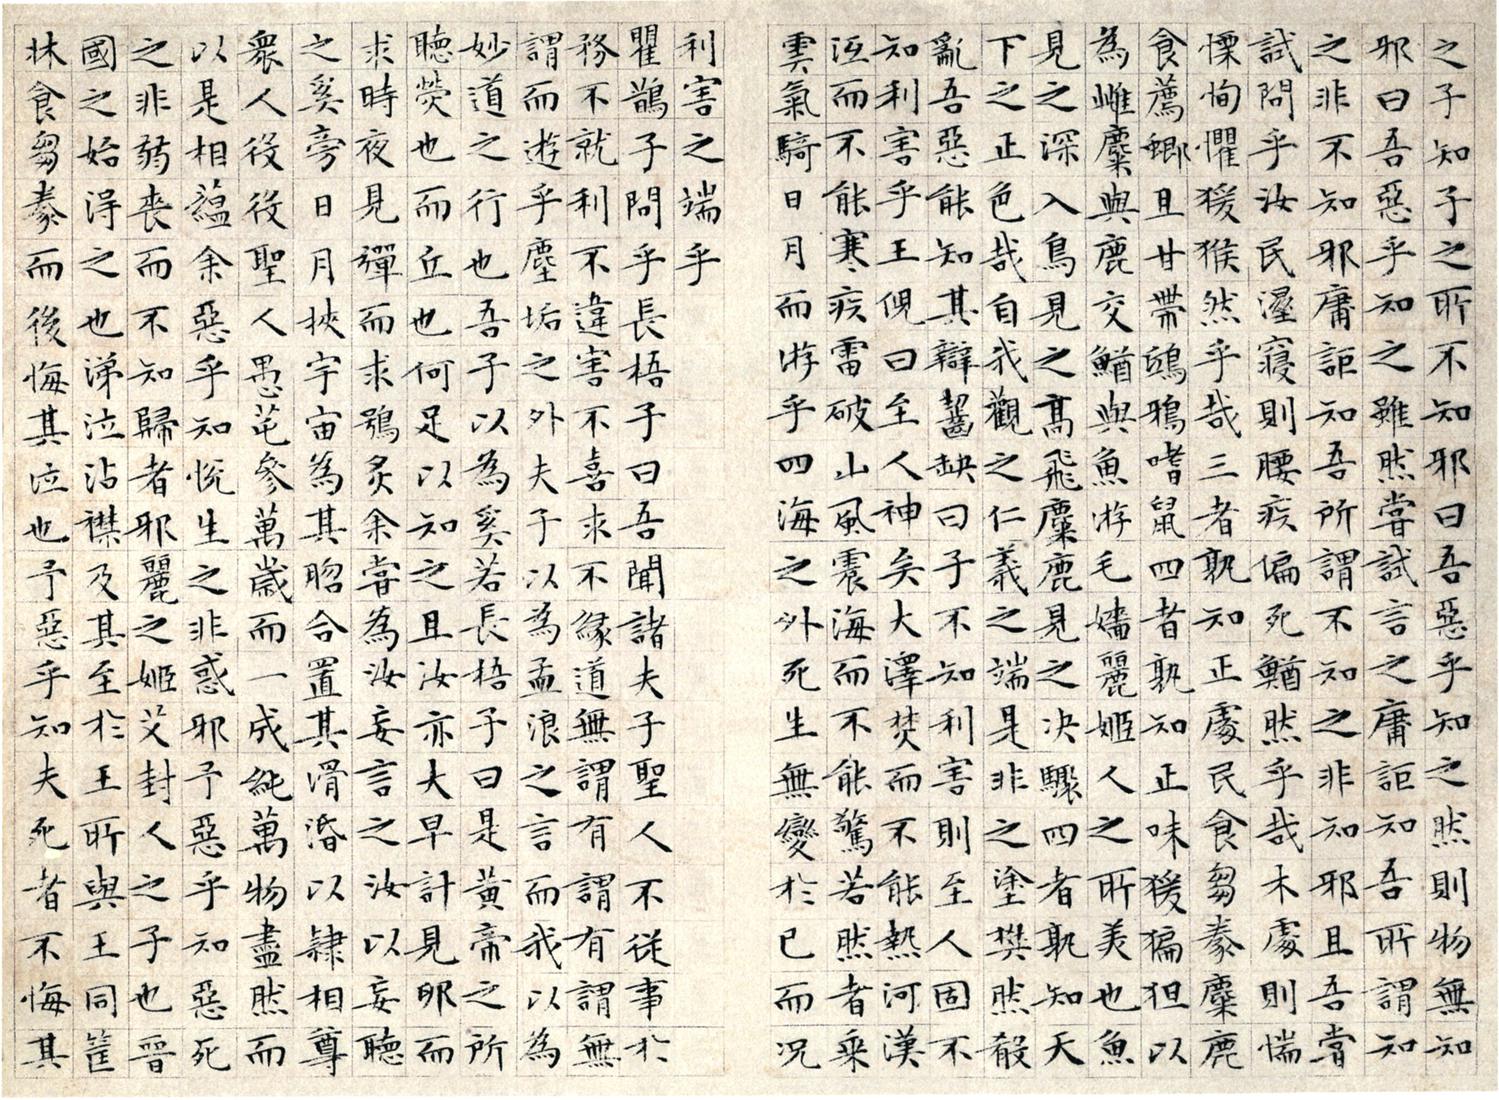 之子知子之所不知邪曰吾惡乎知之然則物無知
邪曰吾惡乎知之雖然嘗試言之庸詎知吾所謂知
之非不知邪庸詎知吾所謂不知之非知邪且吾嘗
試問乎汝民溼寢則腰疾偏死鰌然乎哉木處則惴
慄恂懼猨猴然乎哉三者孰知正處民食芻豢麋鹿
食薦蝍且甘帶鴟鴉嗜鼠四者孰知正味猨猵狙以
為雌麋與鹿交鰌與魚游毛嬙麗姬人之所美也魚
見之深入鳥見之高飛麋鹿見之决驟四者孰知天
下之正色哉自我觀之仁義之端是非之塗樊然殽
亂吾惡能知其辯齧缺曰子不知利害則至人固不
知利害乎王倪曰至人神矣大澤焚而不能熱河漢
沍而不能寒疾雷破山風震海而不能驚若然者乘
雲氣騎日月而游乎四海之外死生無變於已而况
利害之端乎
瞿鵲子問乎長梧子曰吾聞諸夫子聖人不從事於
務不就利不違害不喜求不緣道無謂有謂有謂無
謂而遊乎塵垢之外夫子以為孟浪之言而我以為
妙道之行也吾子以為奚若長梧子曰是黃帝之所
聽熒也而丘也何足以知之且汝亦大早計見卵而
求時夜見彈而求鴞炙余嘗為汝妄言之汝以妄聽
之奚旁日月挾宇宙為其脗合置其滑涽以隸相尊
衆人役役聖人愚芚參萬歲而一成純萬物盡然而
以是相蘊余惡乎知悅生之非惑邪予惡乎知惡死
之非弱喪而不知歸者邪麗之姬艾封人之子也晉
國之始得之也涕泣沾襟及其至於王所與王同筐
牀食芻豢而後悔其泣也予惡乎知夫死者不悔其